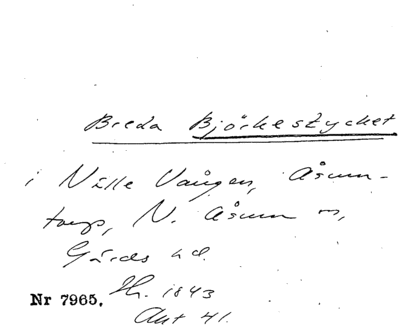 Breda Björkestycket
i Nålle Vången, Åsum-
torp, N. Åsum sn,
Gärds hd.
Nr 7965. Sk. 1843
Akt 41.